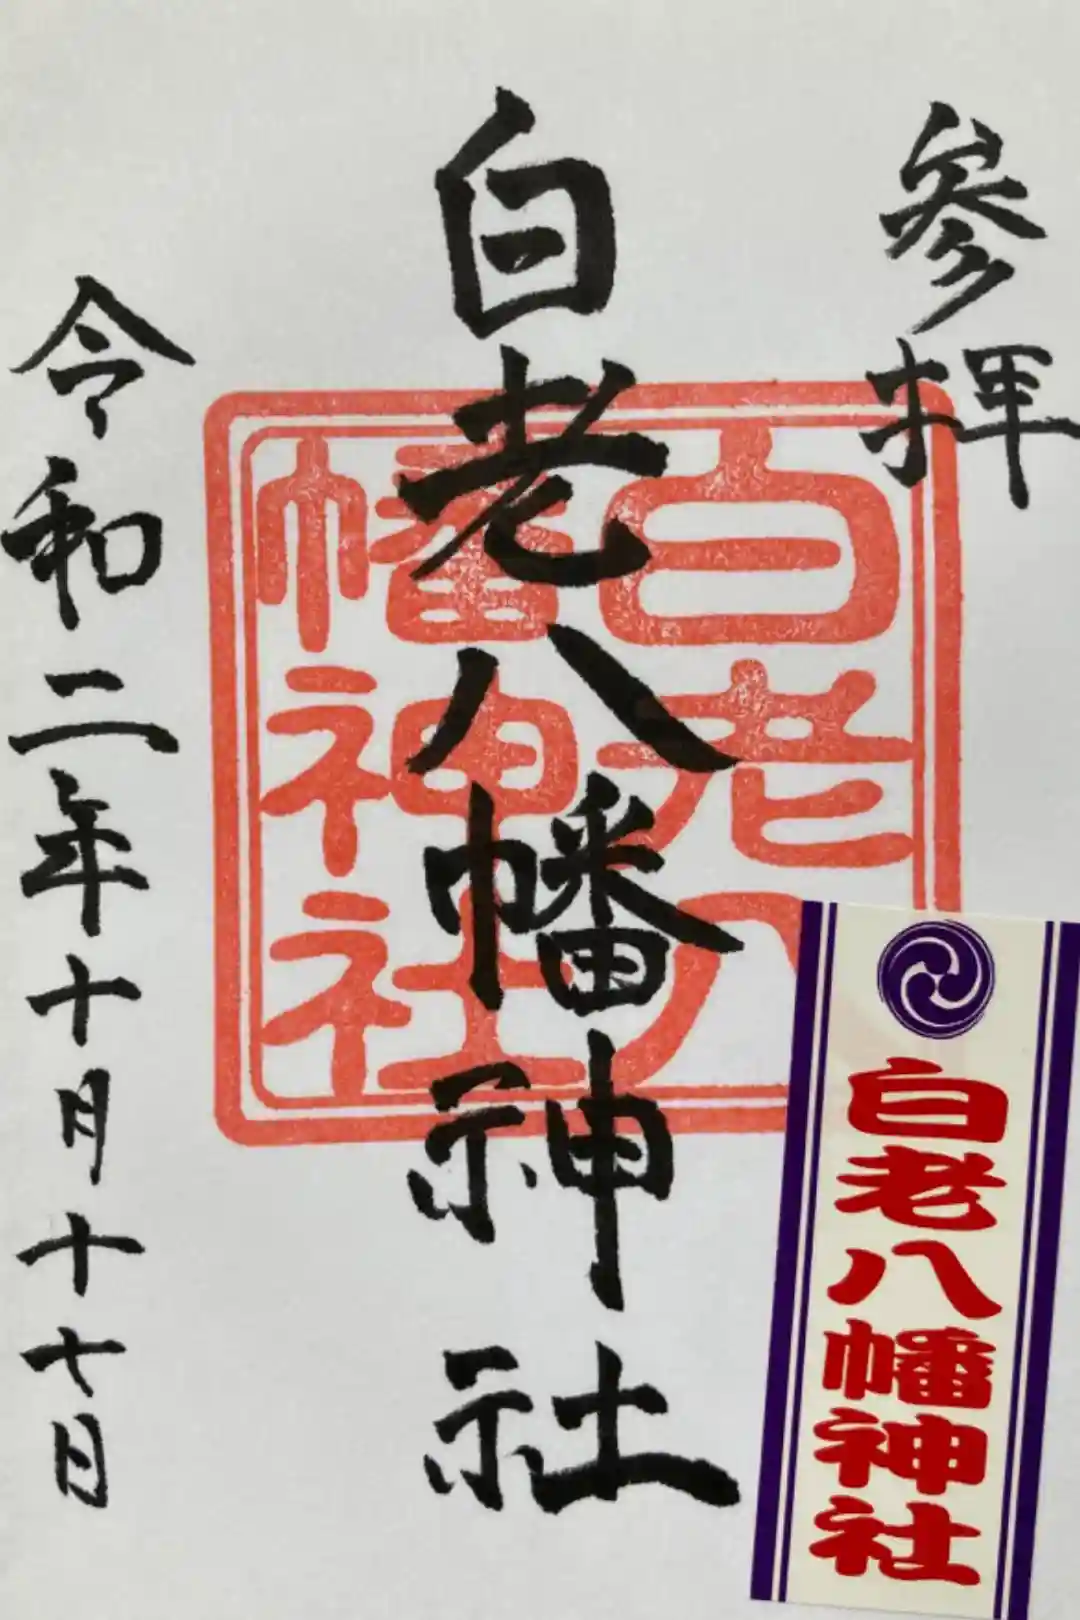 参拝
白老八幡神社
令和二年十月十七日
白老八
幡神社
白老八幡神社